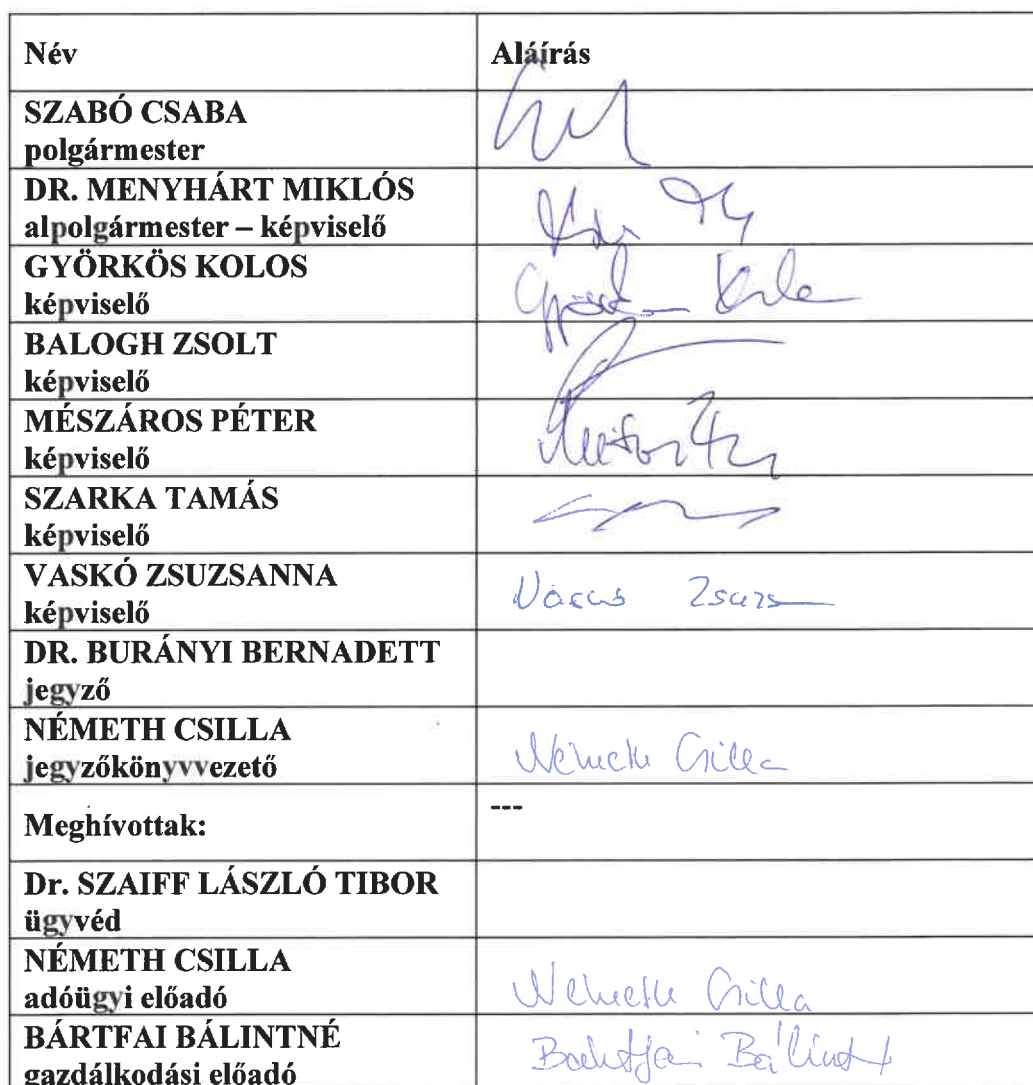 Név
Aláírás
SZABÓ CSABA
polgármester
DR. MENYHÁRT MIKLÓS
alpolgármester – képviselő
GYÖRKÖS KOLOS
képviselő
BALOGH ZSOLT
képviselő
MÉSZÁROS PÉTER
képviselő
SZARKA TAMÁS
képviselő
VASKÓ ZSUZSANNA
képviselő
DR. BURÁNYI BERNADETT
jegyző
NÉMETH CSILLA
jegyzőkönyvvezető
Németh Csilla
Meghívottak:
---
Dr. SZAIFF LÁSZLÓ TIBOR
ügyvéd
NÉMETH CSILLA
adóügyi előadó
Németh Csilla
BÁRTFAI BÁLINTNÉ
gazdálkodási előadó